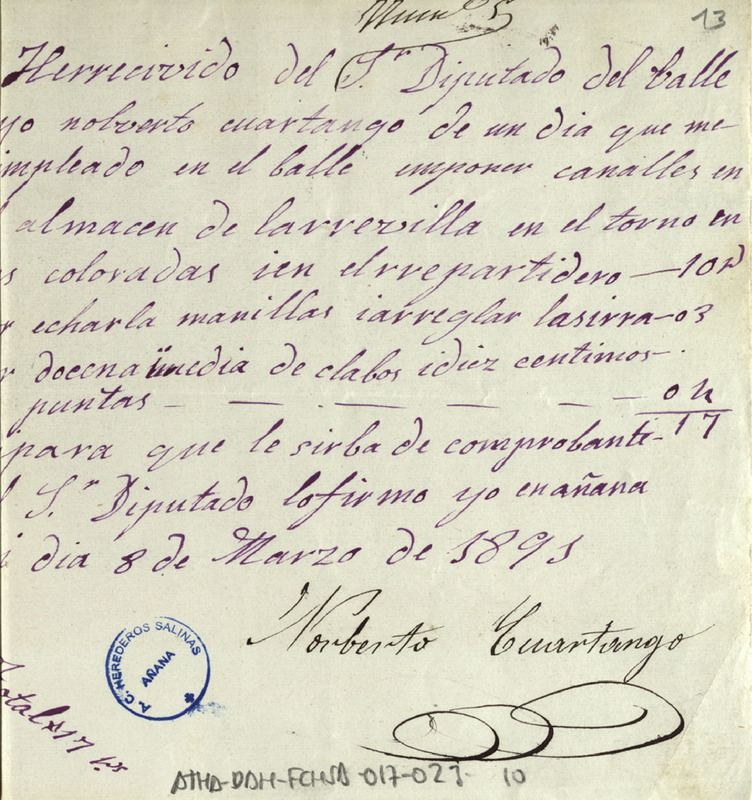 Num.º 5
13
Herrecivido del S.r Diputado del balle
yo nolverto cuartango de un dia que me
impleado en el balle emponer canalles en
almacen de larrevilla en el torno en
s coloradas ien elrrepartidero — 10
r echarla manillas iarreglar lasirra — 03
r docena imedia de clabos idiez centimos
puntas — — — — — 04
17
para que le sirba de comprobante
l S.r Diputado lofirmo yo enañana
i dia 8 de Marzo de 1891
Norberto Cuartango
A. C. HEREDEROS SALINAS
AÑANA
Total 17
ATHA-DAH-FCHSA-017-023- 10